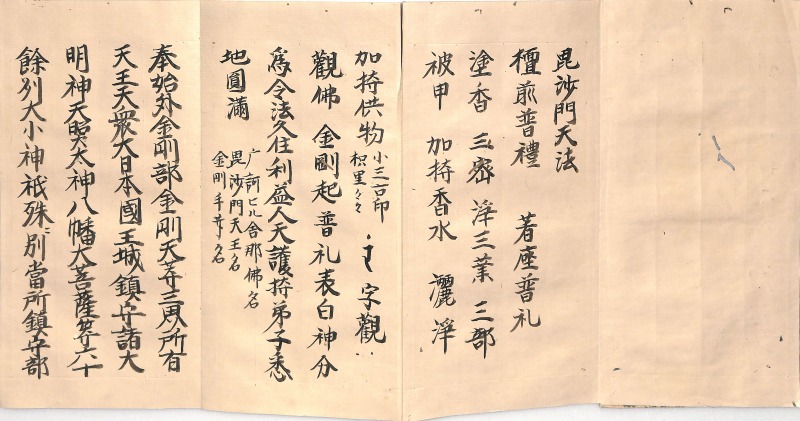 毘沙門天法
壇前普禮 着座普礼
塗香 三密 淨三業 三部
被甲 加持香水 灑淨
加持供物 小三古印 枳里々々 字觀
觀佛 金剛起普礼表白神分
爲令法久住利益人天護持弟子悉
地圓滿
摩訶ヒル舎那佛名
毘沙門天王名
金剛手菩名
奉始外金剛部金剛天等三界所有
天王天衆大日本國王城鎮守諸大
明神天照太神八幡大菩薩等六十
餘列大小神祇殊ニ別當所鎮守部